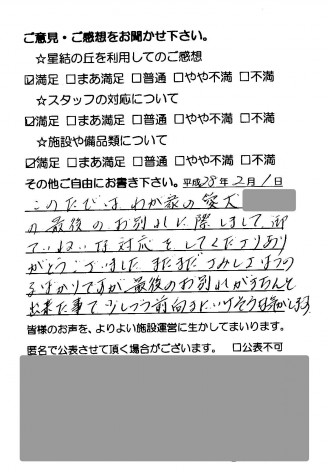 ご意見・ご感想をお聞かせ下さい。
☆星結の丘を利用してのご感想
☑満足 □まあ満足 □普通 □やや不満 □不満
☆スタッフの対応について
☑満足 □まあ満足 □普通 □やや不満 □不満
☆施設や備品類について
☑満足 □まあ満足 □普通 □やや不満 □不満
その他ご自由にお書き下さい。平成28年2月1日
このたびは、わが家の愛犬
の最後のお別れに際しまして、御
ていねいな対応をしてくださりあり
がとうございました まだまださみしさはつの
るばかりですが最後のお別れがきちんと
出来た事で少しづつ前向きにいけそうな気がします
皆様のお声を、よりよい施設運営に生かしてまいります。
匿名で公表させて頂く場合がございます。 □公表不可